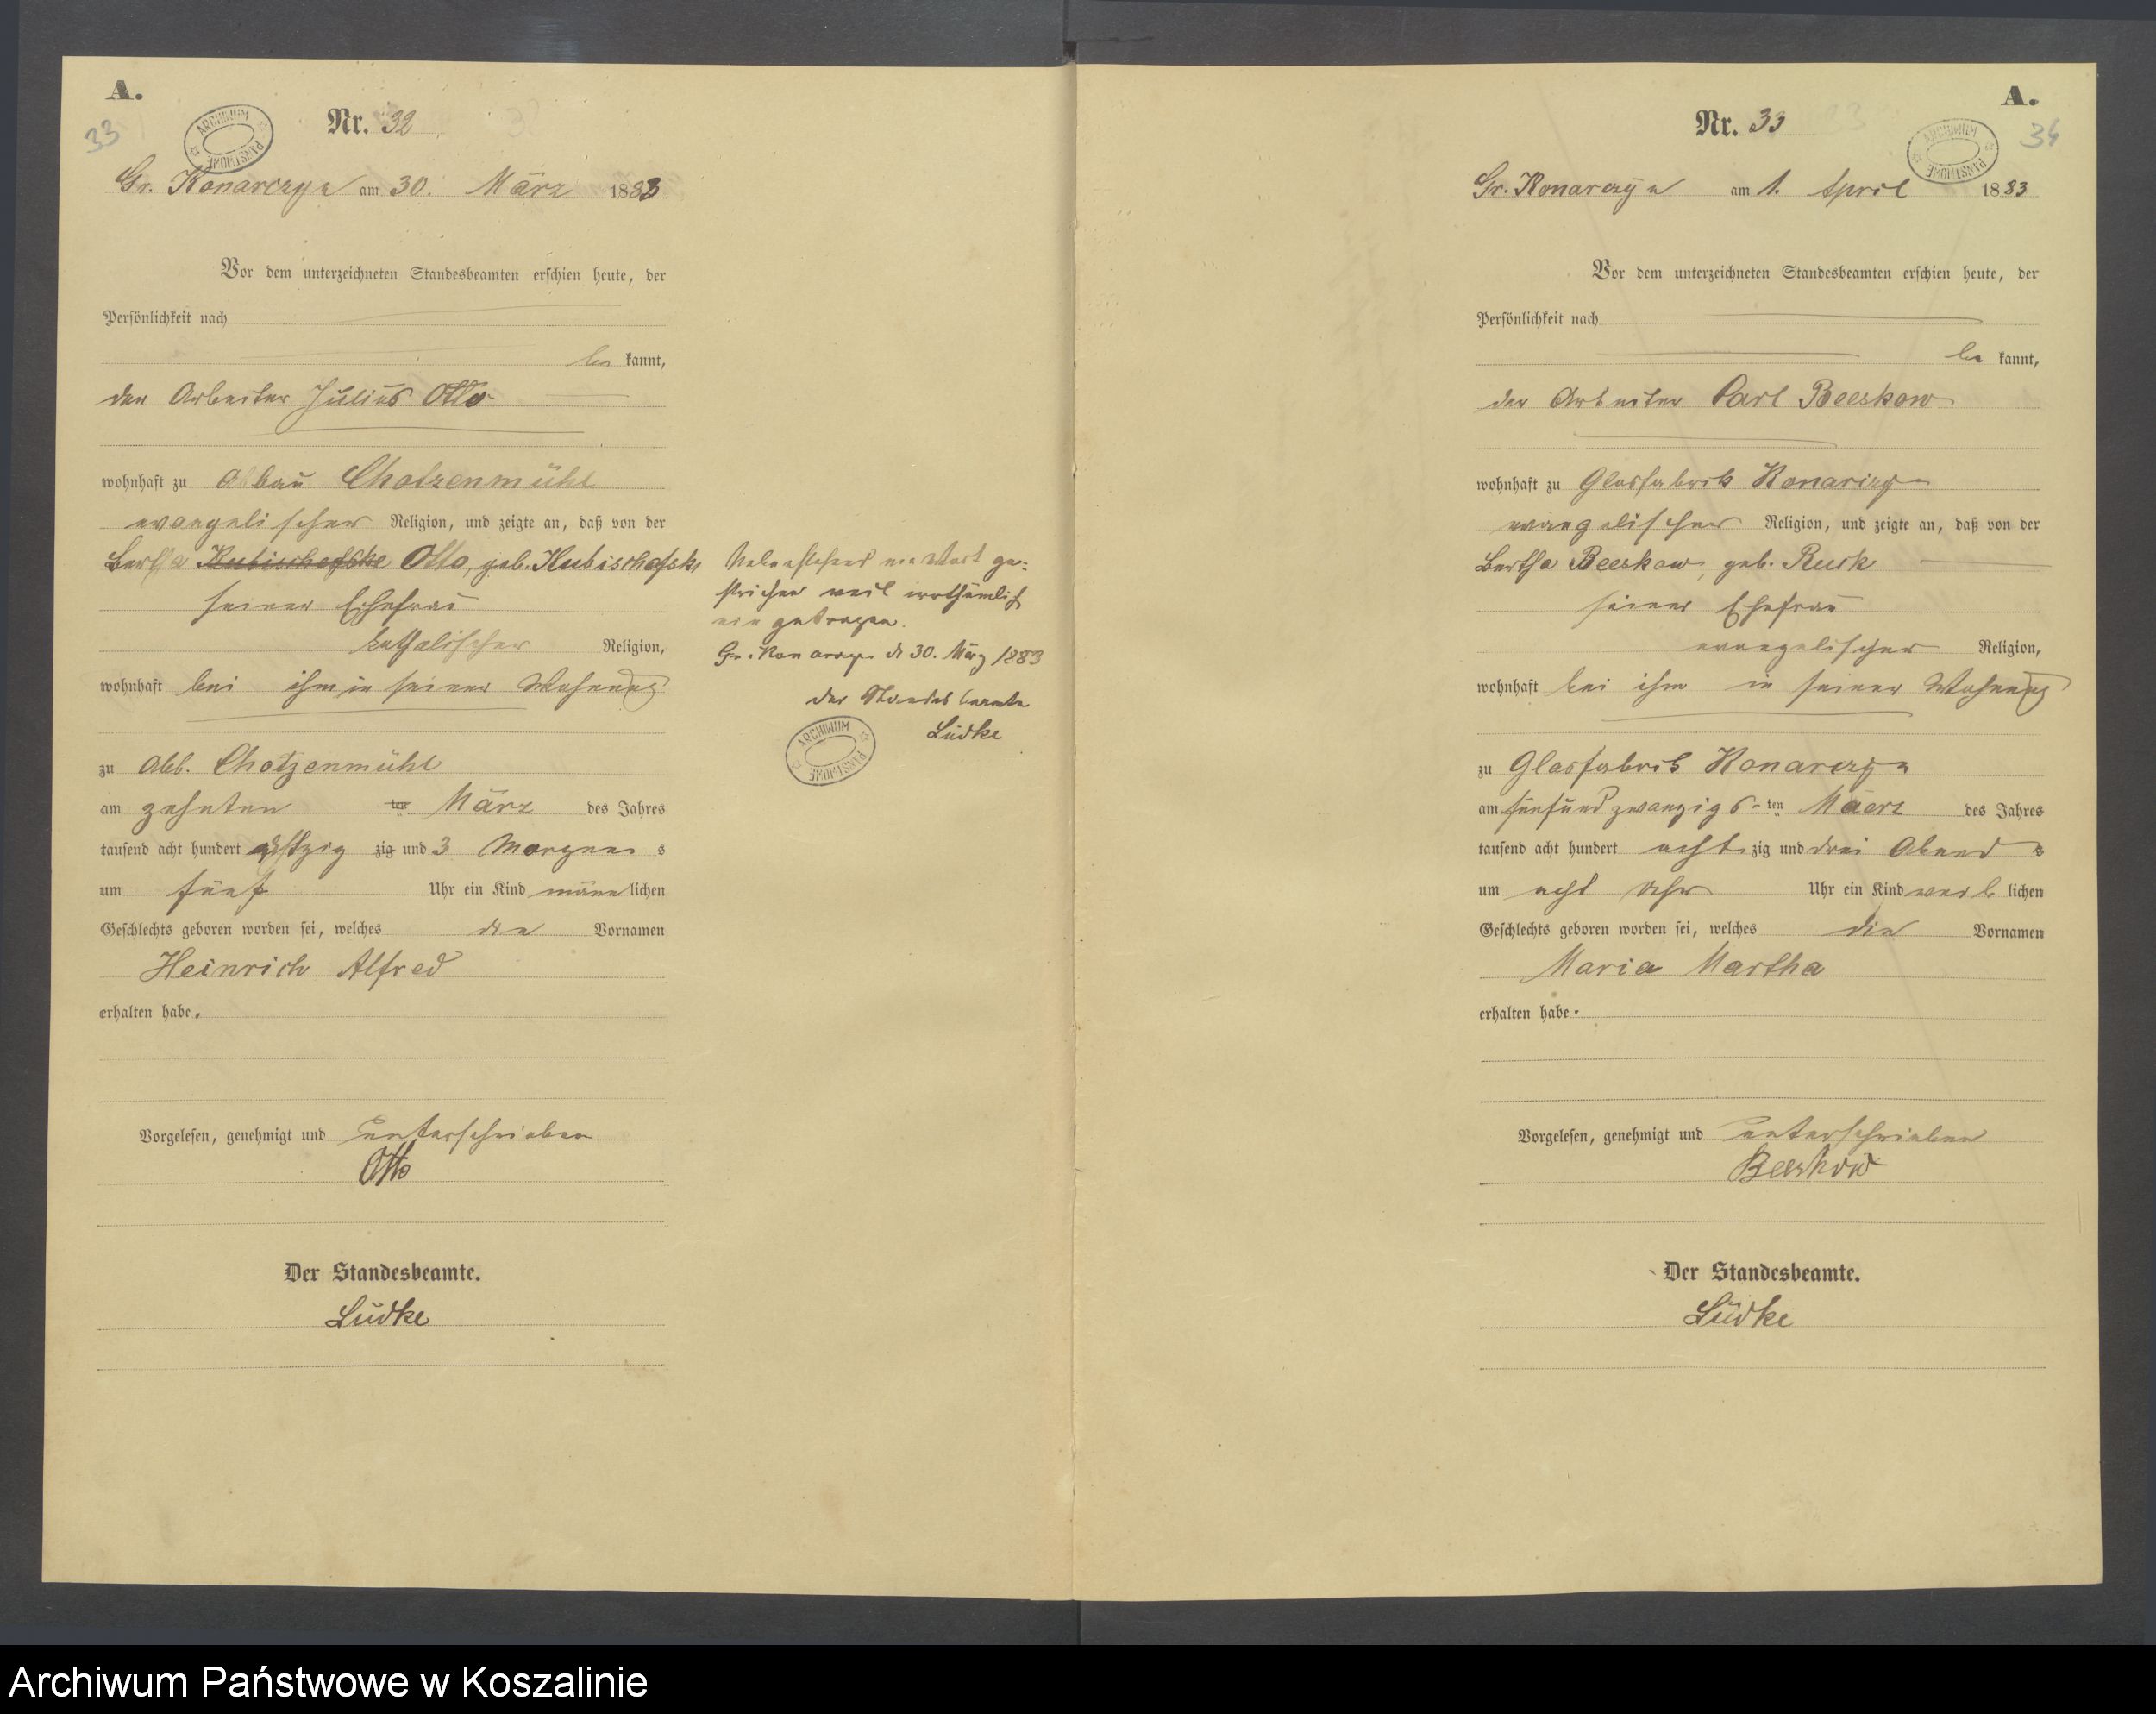 A.
33
ARCHIWUM PAŃSTWOWE
Nr. 32
Gr. Konarczyn am 30. März 1883
Vor dem unterzeichneten Standesbeamten erschien heute, der
Persönlichkeit nach
be kannt,
der Arbeiter Julius Otto
wohnhaft zu Abbau Chotzenmühl
evangelischer Religion, und zeigte an, daß von der
Bertha Kubischefske Otto, geb. Kubischefski
seiner Ehefrau
katholischer Religion,
wohnhaft bei ihm in seiner Wohnung
zu Abb. Chotzenmühl
am zehnten ten März des Jahres
tausend acht hundert achtzig zig und 3 Morgens
um fünf Uhr ein Kind männlichen
Geschlechts geboren worden sei, welches die Vornamen
Heinrich Alfred
erhalten habe.
Vorgelesen, genehmigt und unterschrieben
Otto
Der Standesbeamte.
Lüdke
Nebenstehend ein Wort ge-
strichen weil irrthümlich
eingetragen.
Gr. Konarczyn d 30. März 1883
Der Standesbeamte
Lüdke
ARCHIWUM PAŃSTWOWE
A.
34
ARCHIWUM PAŃSTWOWE
Nr. 33
Gr. Konarczyn am 1. April 1883
Vor dem unterzeichneten Standesbeamten erschien heute, der
Persönlichkeit nach
be kannt,
der Arbeiter Carl Beeskow
wohnhaft zu Glasfabrik Konarczyn
evangelischer Religion, und zeigte an, daß von der
Bertha Beeskow, geb. Rusk
seiner Ehefrau
evangelischer Religion,
wohnhaft bei ihm in seiner Wohnung
zu Glasfabrik Konarczyn
am fünfundzwanzigs ten Maerz des Jahres
tausend acht hundert achtzig und drei Abends
um acht Uhr Uhr ein Kind weiblichen
Geschlechts geboren worden sei, welches die Vornamen
Maria Martha
erhalten habe.
Vorgelesen, genehmigt und unterschrieben
Beeskow
Der Standesbeamte.
Lüdke
Archiwum Państwowe w Koszalinie